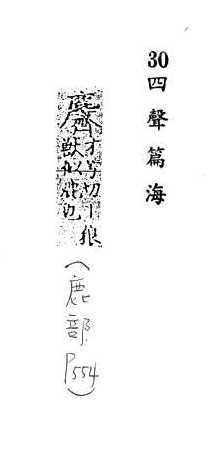 30 四聲篇海
麡
才兮切丨狼
獸似鹿也
(鹿部 P554)